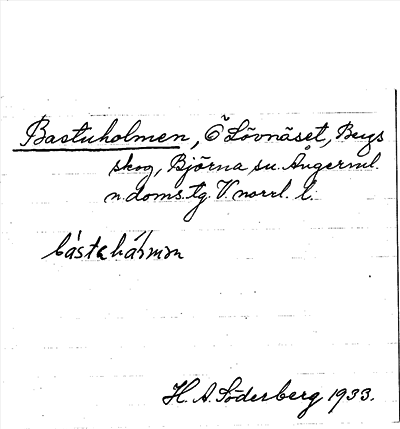 Bastuholmen, Ö Lövnäset, Bergs
skog, Björna su. Ångerml.
n. doms. tg. V. norrl. l.
bástahàrmən
H. A. Söderberg 1933.